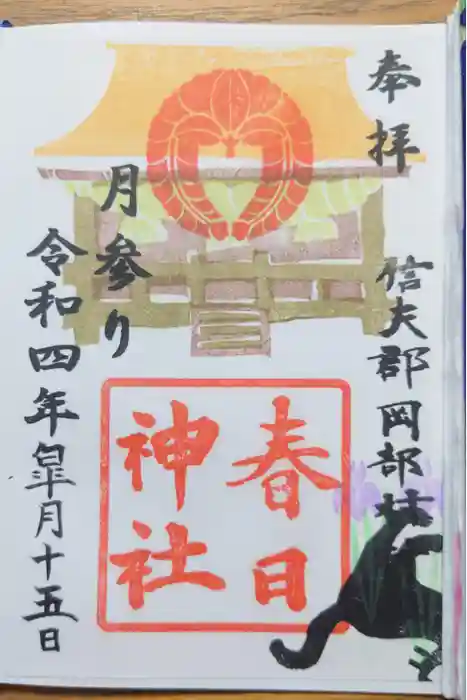 奉拝
信夫郡岡部
春日
神社
月参り
令和四年皐月十五日